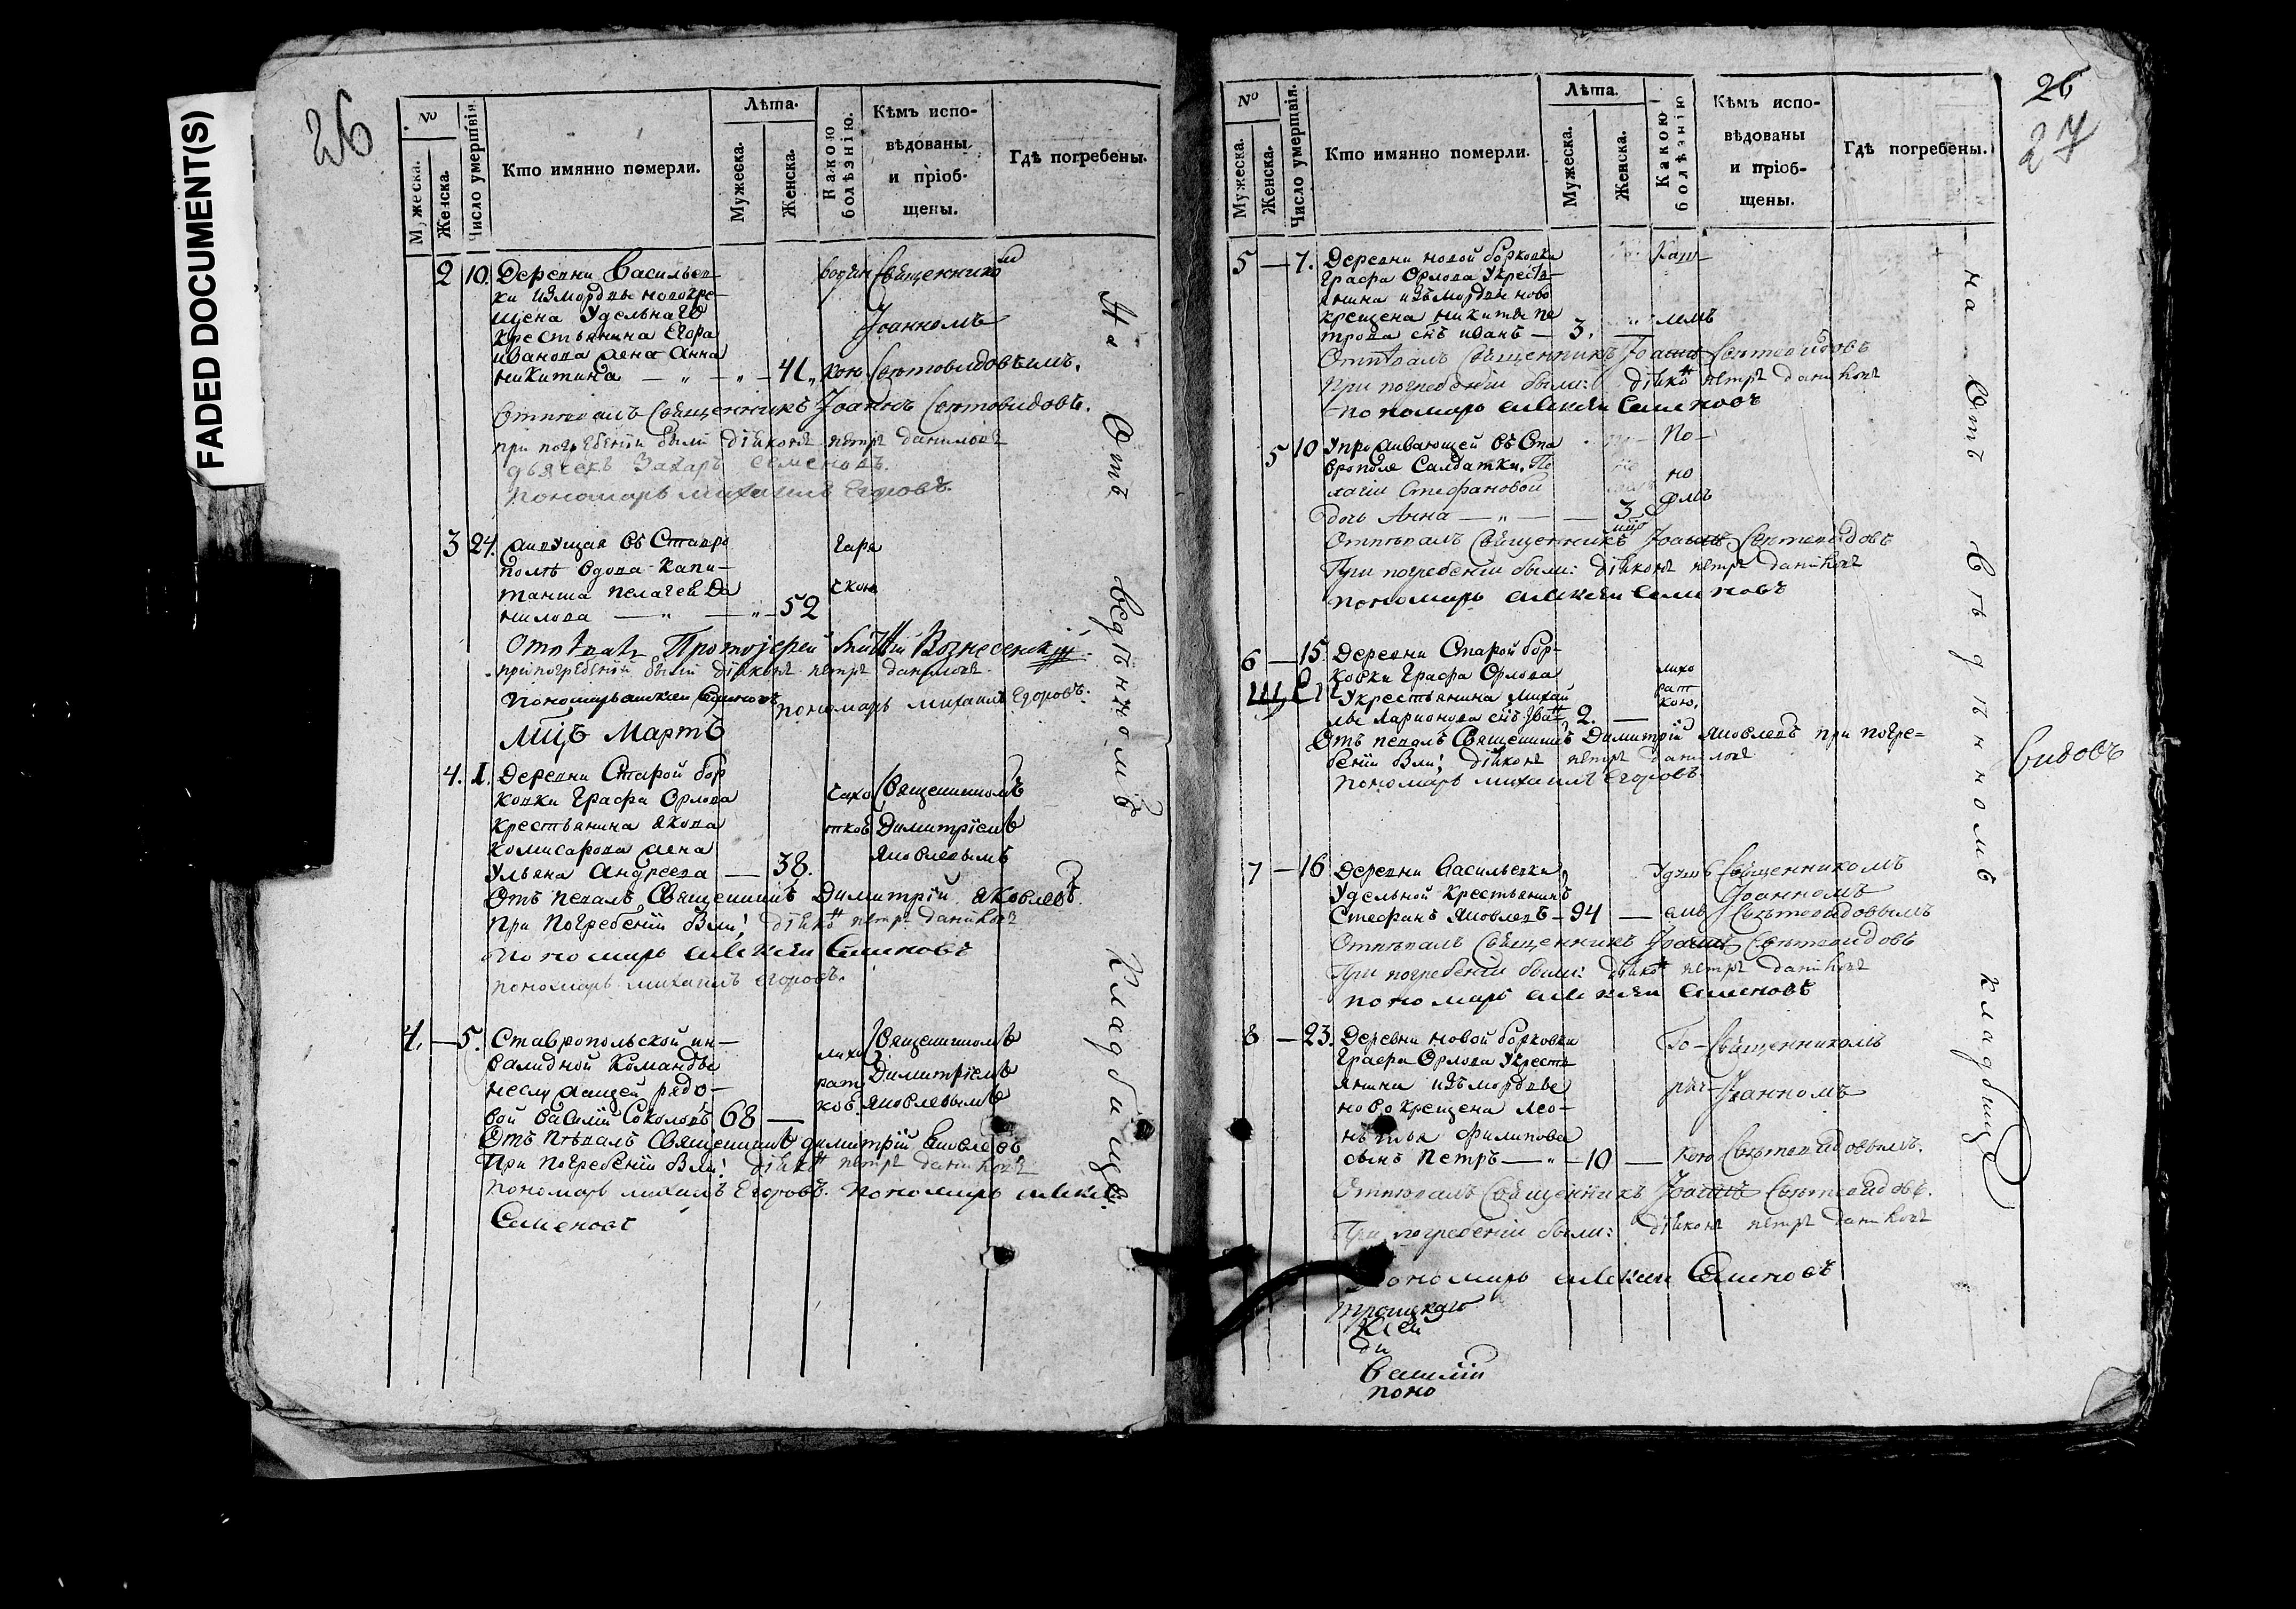 FADED DOCUMENT(S)
26
№
Мужеска.
Женска.
Число умершвія.
Кто имянно померли.
Лѣта.
Мужеска.
Женска.
Какою болѣзнію.
Кѣмъ испо-
вѣдованы
и пріоб-
щены.
Гдѣ погребены.
2 10. Деревни Васильев
ки изъ мордвы новокре
щена Удельнаго
крестьянина Егора
Иванова жена Анна
Никитина — „ — „ — 41 „
Священнико
Іоанномъ
Свѣтовидовымъ.
Отпѣвалъ Священникъ Іоаннъ Свѣтовидовъ.
при погребеніи были діаконъ петръ даниловъ
дьячекъ Захаръ Семеновъ.
Пономарь михаилъ Егоровъ.
3 24. живущая въ Ставро
полѣ вдова капи-
танша пелагея Да
нилова — „ — „ — 52
горя
чкою
Отпѣвалъ Протоіерей Вознесенскій
при погребеніи были діаконъ петръ даниловъ
Пономарь алексей Семеновъ
пономарь михаилъ Егоровъ.
Мцъ Мартъ
4. 1. Деревни Старой бор
ковки Графа Орлова
крестьянина Якова
Комисарова жена
Ульяна Андреева — 38.
чахо
ткою
Священникомъ
Димитріемъ
Яковлевымъ
Отъ певалъ Священникъ Димитрій Яковлевъ.
При Погребеніи были: діако петръ даниловъ
пономарь алексей Семеновъ
пономарь михаилъ егоровъ.
4. — 5. Ставропольской ин-
валидной Команды
неслужащей рядо-
вой Василій Соколовъ 68 —
лихо
рат
кою
Священникомъ
Димитріемъ
Яковлевымъ
Отъ пѣвалъ Священникъ димитрій Яковлевъ
При погребеніи были: діако петръ даниловъ
пономарь михаилъ Егоровъ. пономарь алексей
Семеновъ
На Отъ веденномъ кладбище.
26
27
№
Мужеска.
Женска.
Число умерщвія.
Кто имянно померли.
Лѣта.
Мужеска.
Женска.
Какою болѣзнію
Кѣмъ испо-
вѣдованы
и пріоб-
щены.
Гдѣ погребены.
5 — 7. Деревни новой борковки
Графа Орлова Укресть
янина изъ мордвы ново
крещена никиты пе
трова снъ иванъ — 3. —
каш-
лемъ
Отпѣвалъ Священникъ Іоаннъ Свѣтовидовъ
При погребеніи были: діако петръ даниловъ
пономарь алексей Семеновъ
5 10 Упроживающей въ Ста
врополе Салдатки, Пе
лагіи Стефановой
дочь Анна — „ — — 3
По-
но
сомъ
Отпѣвалъ Священникъ Іоаннъ Свѣтовидовъ
При погребеніи были: діаконъ петръ даниловъ
пономарь алексей Семеновъ
6 — 15. Деревни Старой бор-
ковки Графа Орлова
Укрестьянина Михаи
лы Ларионова снъ Іва 2. —
лихо
рат
кою.
Отъ певалъ Священникъ Димитрій Яковлевъ при погре=
беніи были: діаконъ петръ даниловъ
пономарь михаилъ Егоровъ.
7 — 16 Деревни Васильевки
Удельной крестьянинъ
Стефанъ Яковлевъ — 94 —
удуш
емъ
Священникомъ
Іоанномъ
Свѣтовидовымъ
Отпѣвалъ Священникъ Іоаннъ Свѣтовидовъ
При погребеніи были: діако петръ даниловъ
пономарь алексей Семеновъ
8 — 23. Деревни новой борковки
Графа Орлова Укресть
янина изъ мордвы
новокрещена Лео-
нтья Филипова
сынъ Петръ — „ — 10 —
Го-
ряч-
кою
Священникомъ
Іоанномъ
Свѣтовидовымъ.
Отпѣвалъ Священникъ Іоаннъ Свѣтовидовъ.
При погребеніи были: діаконъ петръ даниловъ
пономарь алексей Семеновъ
троицкаго
ди
Василіи
поно
на Отъ веденномъ кладбище
видовъ